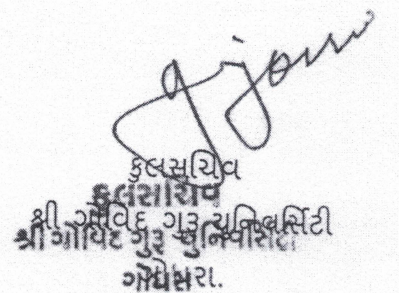 કુલસચિવ
કુલસચિવ
શ્રી ગોવિંદ ગુરુ યુનિવર્સિટી
શ્રી ગોવિંદ ગુરુ યુનિવર્સિટી
ગોધરા.